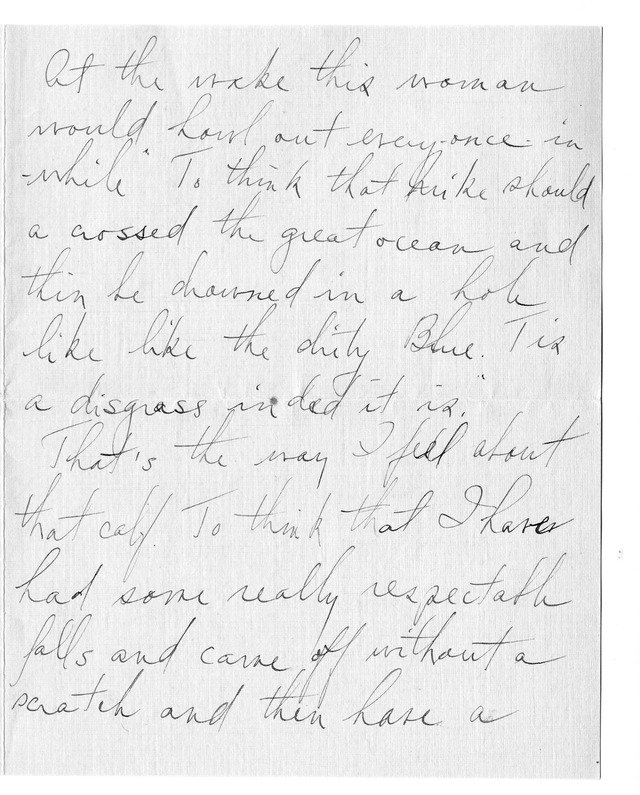 At the wake this woman
would howl out every-once-in
-while "To think that Mike should
a crossed the great ocean and
thin be drowned in a hole
like like the dirty Blue. Tis
a disgrass indeed it is."
That's the way I feel about
that calf. To think that I have
had some really respectable
falls and came off without a
scratch and then have a